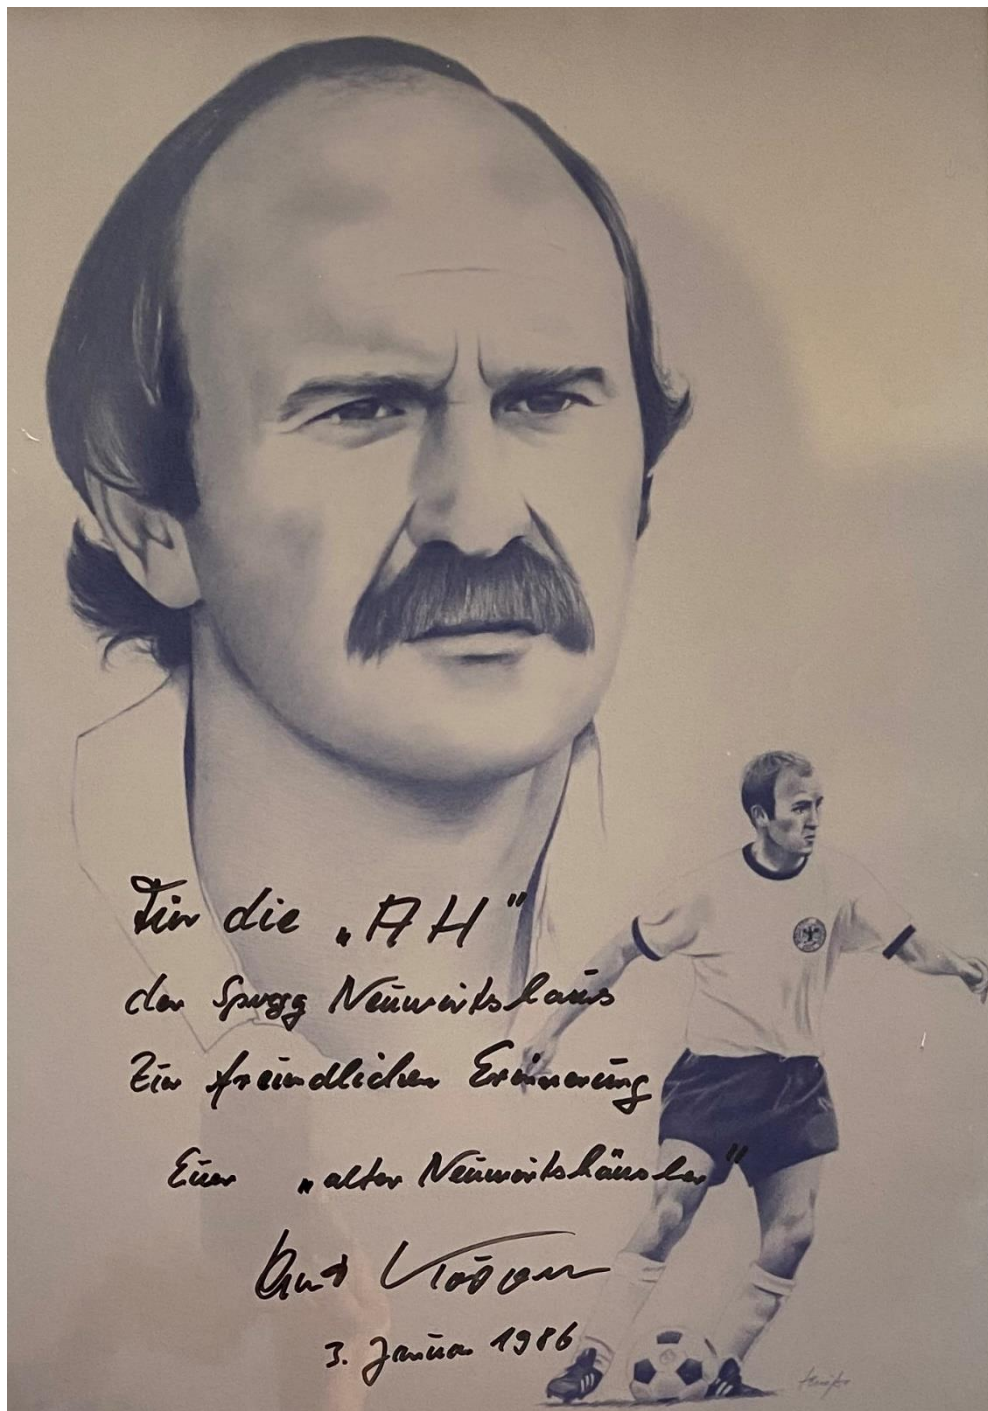 Für die „AH"
der Spvgg Neuwirtshaus
Zur freundlichen Erinnerung
Euer „alter Neuwirtshäusler"
3. Januar 1986